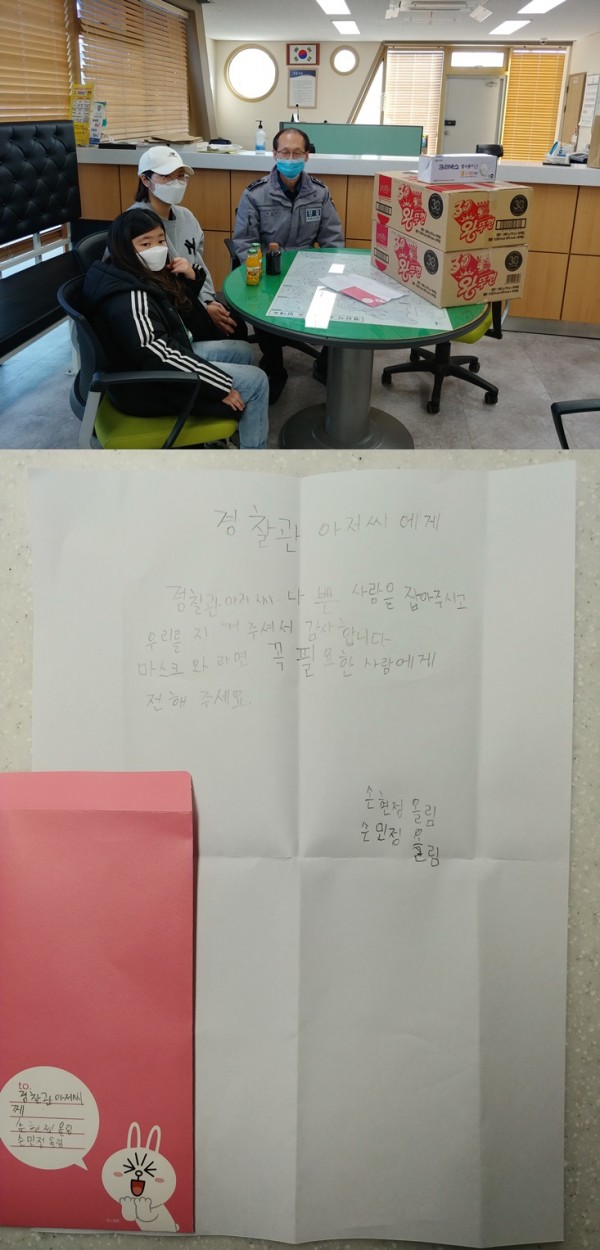 왕뚜껑
30
왕뚜껑
30
크리넥스
경찰관 아저씨에게
경찰관 아저씨 나쁜 사람을 잡아주시고
우리를 지켜주셔서 감사합니다
마스크와 라면 꼭 필요한 사람에게
전해 주세요.
손현정 올림
손민정 올림
to.
경찰관 아저씨
께
손현정 올림
손민정 올림